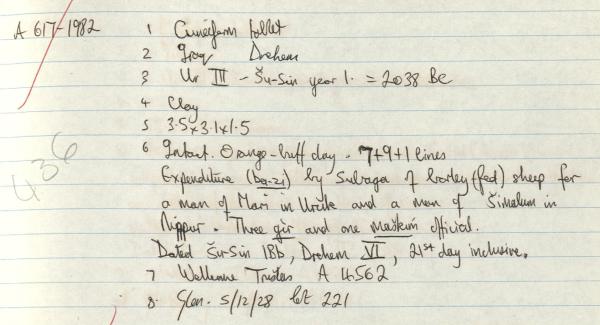 A 617-1982
1 Cuneiform tablet
2 Iraq Drehem
3 Ur III - Šu-Sin year 1. = 2038 BC
4 Clay
5 3.5 x 3.1 x 1.5
6 Intact. Orange-buff clay. 7+9+1 lines
Expenditure (ba-zi) by Subaga of barley (fed) sheep for
a man of Mari in Uruk and a man of Šimalum in
Nippur. Three gir and one maškim official.
Dated Šu-Sin 1Bb, Drehem VI, 21st day inclusive.
7 Wellcome Trustees A 4562
8 Glen. 5/12/28 lot 221
436